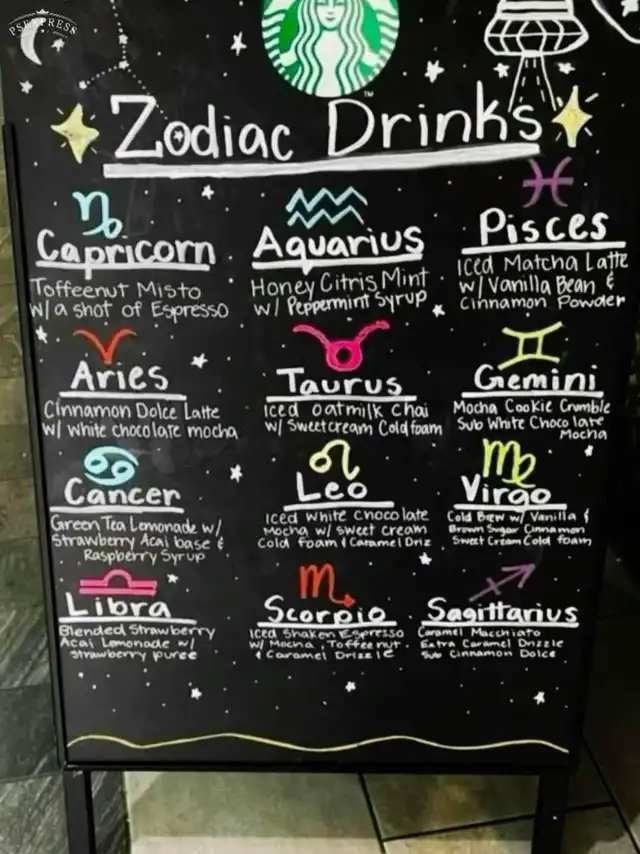 PSEXPRESS
TM
Zodiac Drinks
Capricorn
Toffeenut Misto
w/a shot of Espresso
Aquarius
Honey Citris Mint
w/ Peppermint Syrup
Pisces
Iced Matcha Latte
w/ Vanilla Bean &
Cinnamon Powder
Aries
Cinnamon Dolce Latte
w/ white chocolate mocha
Taurus
Iced oatmilk chai
w/ Sweetcream Coldfoam
Gemini
Mocha Cookie Crumble
Sub White Chocolate
Mocha
Cancer
Green Tea Lemonade w/
Strawberry Acai base &
Raspberry Syrup
Leo
Iced White Chocolate
Mocha w/ sweet cream
Cold foam & Caramel Driz
Virgo
Cold Brew w/ Vanilla &
Brown Sugar Cinnamon
Sweet Cream Cold foam
Libra
Blended Strawberry
Acai Lemonade w/
Strawberry puree
Scorpio
Iced Shaken Espresso
w/ Mocha, Toffeenut
& Caramel Drizzle
Sagittarius
Caramel Macchiato
Extra Caramel Drizzle
Sub Cinnamon Dolce